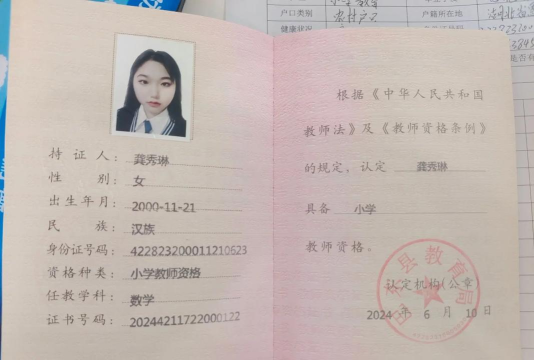 户口类别
户籍所在地
健康状况
持证人： 龚秀琳
性别： 女
出生年月： 2000-11-21
民族： 汉族
身份证号码： 422823200011210623
资格种类： 小学教师资格
任教学科： 数学
证书号码： 20244211722000122
根据《中华人民共和国
教师法》及《教师资格条例》
的规定，认定 龚秀琳
具备 小学
教师资格。
县教育局
认定机构(公章)
2024 年 6 月 10 日